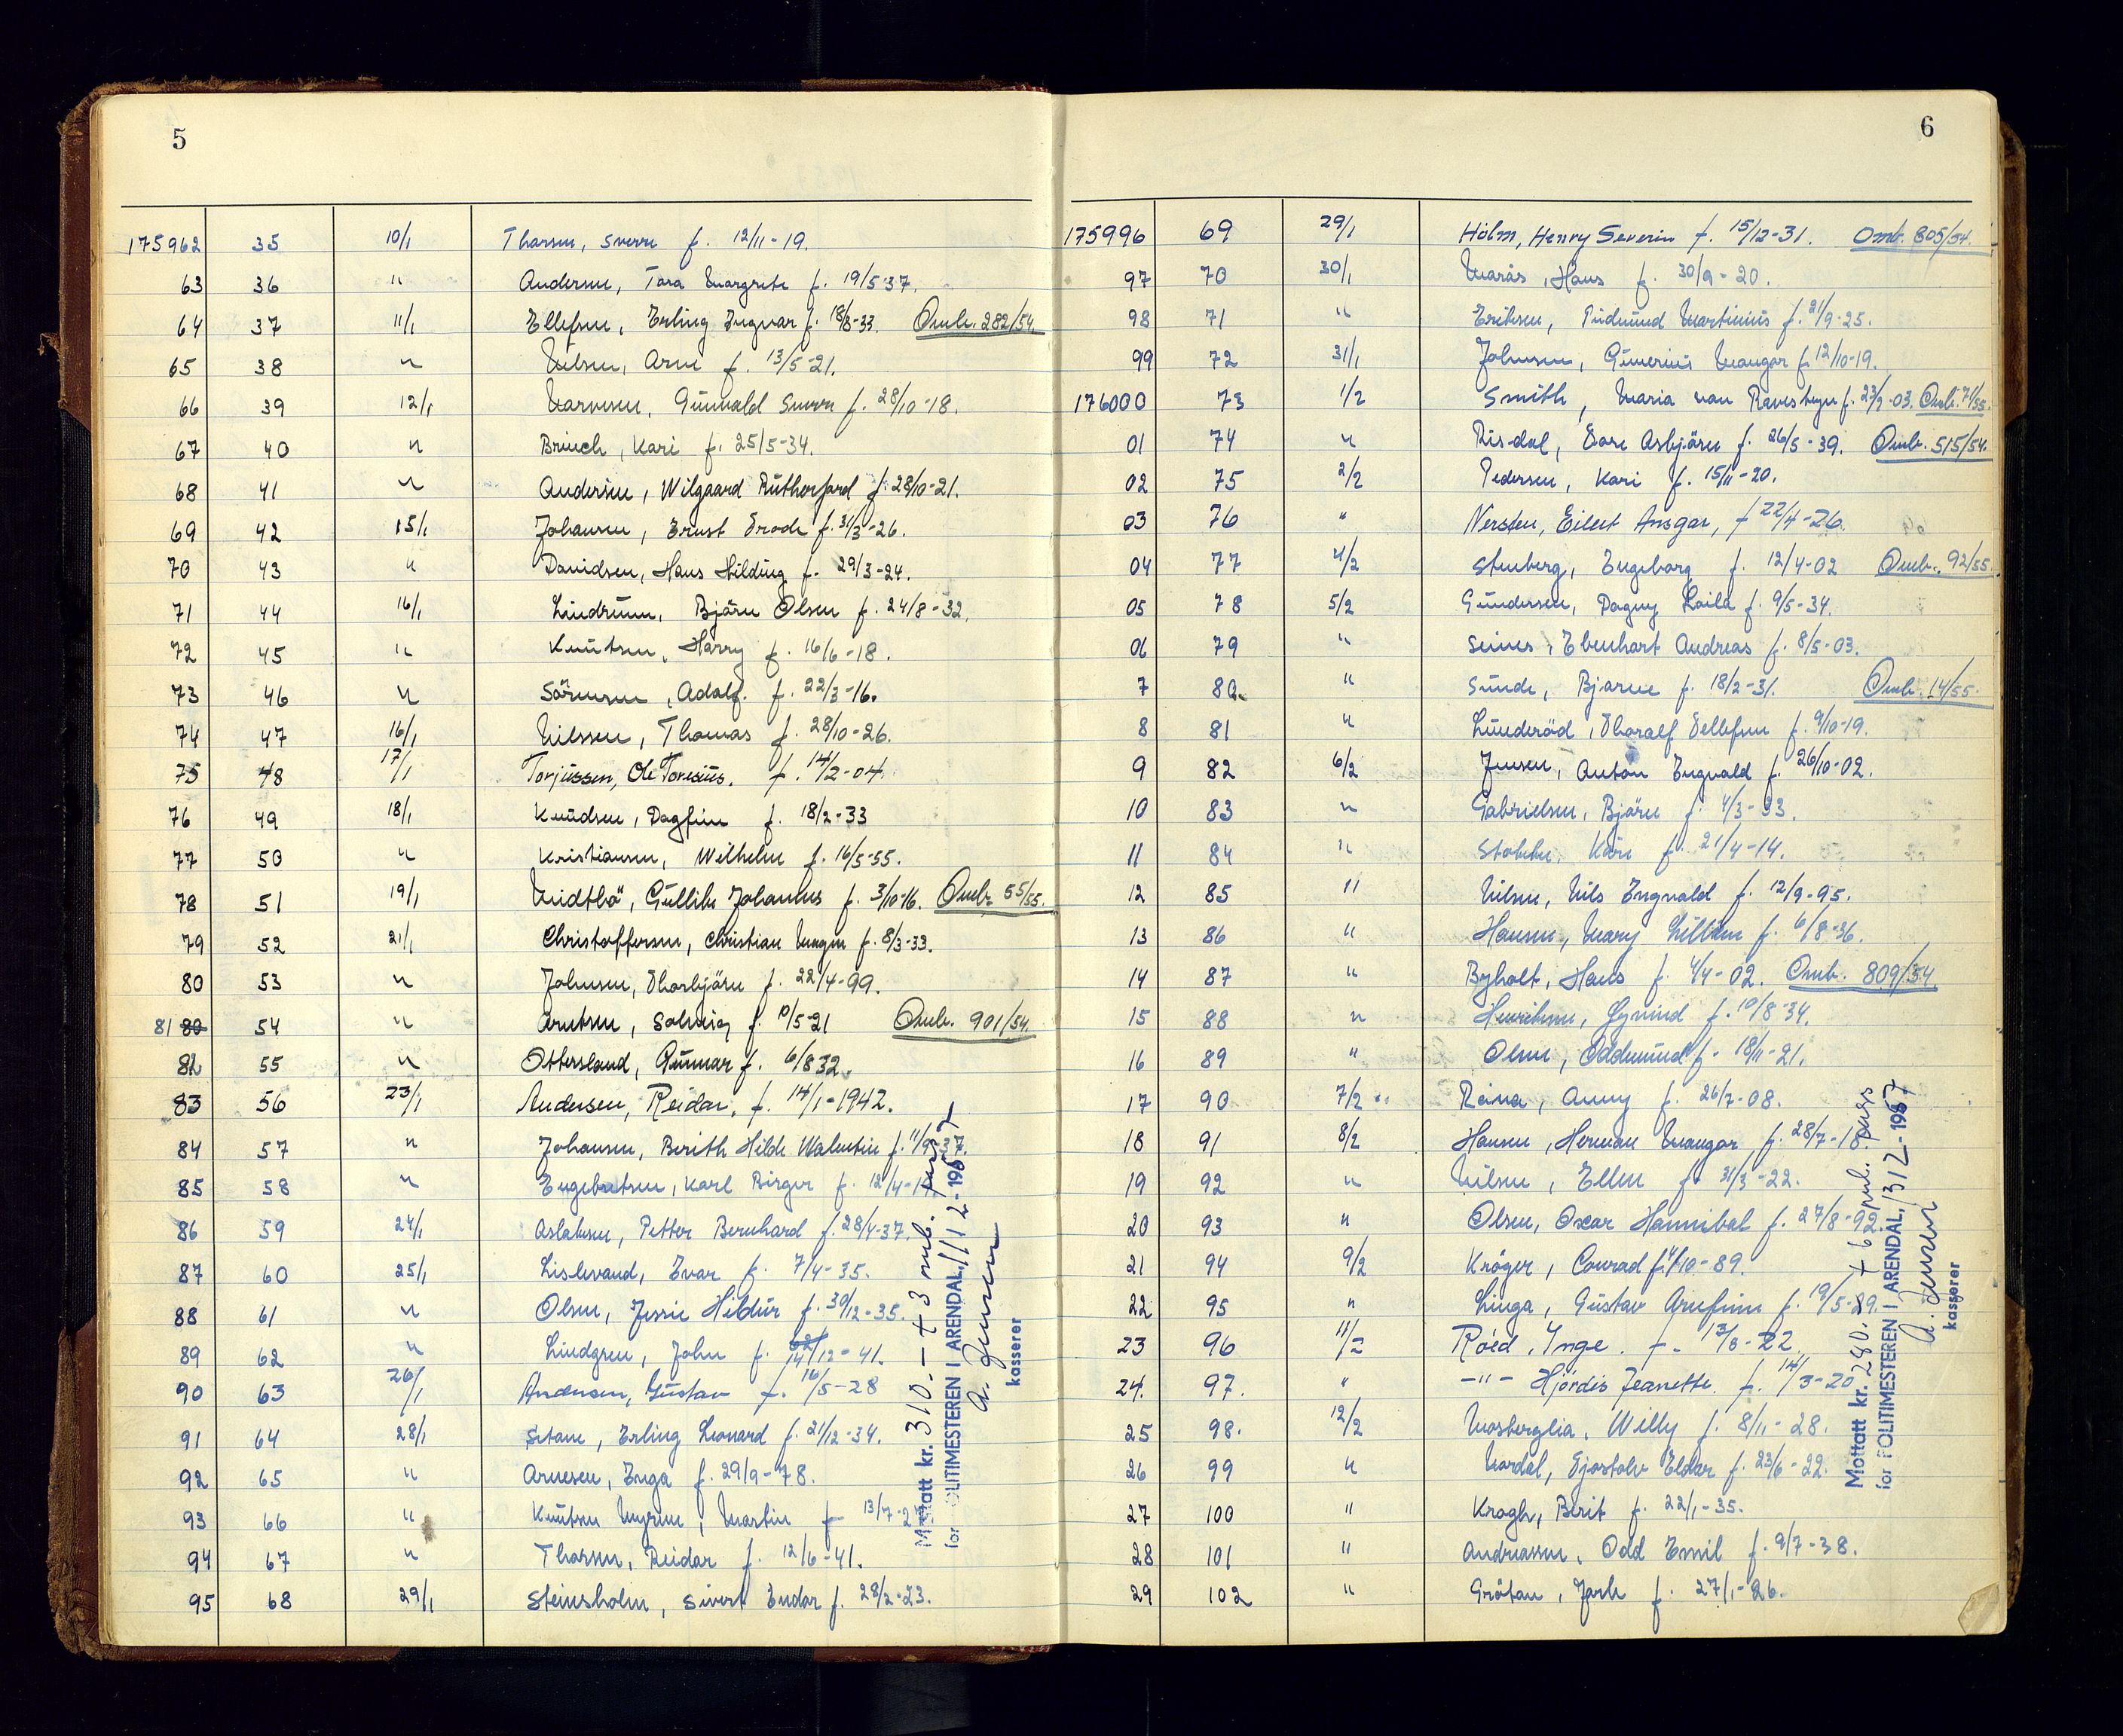 5
175962 35 10/1 Thorsen, Sverre f. 12/11-19.
63 36 " Andersen, Tora Margrete f. 19/5-37.
64 37 11/1 Ellefsen, Erling Ingvar f. 18/8-33. Omb. 282/54
65 38 " Nilsen, Arne f. 13/5-21.
66 39 12/1 Narvesen, Gunvald Sverre f. 28/10-18.
67 40 " Bruech, Kari f. 25/5-34.
68 41 " Andersen, Wilgaard Rutherford f. 28/10-21.
69 42 15/1 Johansen, Ernst Frode f. 31/3-26.
70 43 " Davidsen, Hans Hilding f. 29/3-24.
71 44 16/1 Lindrum, Bjärn Olsen f. 24/8-32.
72 45 " Knutsen, Harry f. 16/6-18.
73 46 " Sörensen, Adolf. f. 22/3-16.
74 47 16/1 Nilssen, Thomas f. 28/10-26.
75 48 17/1 Torjussen, Ole Toresius. f. 14/2-04.
76 49 18/1 Knudsen, Dagfinn f. 18/2-33
77 50 " Kristiansen, Wilhelm f. 16/5-55.
78 51 19/1 Midtbö, Gullik Johannes f. 3/10-16. Omb. 55/55.
79 52 21/1 Christoffersen, Christian Magne f. 8/3-33.
80 53 " Johnsen, Thorbjörn f. 22/4-99.
81 80 54 " Arntsen, Solveig f. 10/5-21 Omb. 901/54.
82 55 " Ottersland, Gunnar f. 6/8 32.
83 56 23/1 Andersen, Reidar, f. 14/1-1942.
84 57 " Johansen, Berith Hilde Valentin f. 11/9-37.
85 58 " Engebretsen, Karl Birger f. 12/4-
86 59 24/1 Aslaksen, Petter Bernhard f. 28/4-37.
87 60 25/1 Lislevand, Ivar f. 7/4-35.
88 61 " Olsen, Jessie Hildur f. 30/12-35.
89 62 " Lindgren, John f. 14/12-41.
90 63 26/1 Andersen, Gustav f. 16/5-28
91 64 28/1 Setane, Erling Leonard f. 21/12-34.
92 65 " Arnesen, Inga f. 29/9-78.
93 66 " Knutsen Myrene, Martin f 13/7-2
94 67 " Thorsen, Reidar f. 12/6-41.
95 68 29/1 Steinsholm, Sivert Endor f. 28/2-23.
Mottatt kr. 310.- + 3 omb. pass
for POLITIMESTEREN I ARENDAL, 11/2-1957
A. Jensen
kasserer
6
175996 69 29/1 Holm, Henry Severin f. 15/12-31. Omb. 805/54.
97 70 30/1 Marås, Hans f. 30/9-20.
98 71 " Eriksen, Gudmund Martinius f. 21/9-25.
99 72 31/1 Johnsen, Gunerius Maugor f. 12/10-19.
176000 73 1/2 Smith, Maria van Ravesteyn f. 23/9-03. Omb. 71/55.
01 74 " Risdal, Tore Asbjörn f. 26/5-39. Omb. 515/54.
02 75 2/2 Pedersen, Kari f. 15/11-20.
03 76 " Nersten, Eilert Ansgar, f 22/4-26.
04 77 4/2 Stenberg, Ingeborg f. 12/4-02 Omb. 92/55.
05 78 5/2 Gundersen, Dagny Laila f. 9/5-34.
06 79 " Seines, Ebenhart Andreas f. 8/5-03.
7 80. " Sunde, Bjarne f. 18/2-31. Omb. 14/55.
8 81 " Lunderöd, Thoralf Tellefsen f. 9/10-19.
9 82 6/2 Jensen, Anton Ingvald f. 26/10-02.
10 83 " Gabrielsen, Bjärn f. 4/3-33.
11 84 " Stokke, Kåre f. 21/4-14.
12 85 " Nilsen, Nils Ingvald f. 12/9-95.
13 86 " Hansen, Mary Lillian f. 6/8-36.
14 87 " Byholt, Hans f. 4/4-02. Omb. 809/54.
15 88 " Henriksen, Öyvind f. 10/8-34.
16 89 " Olsen, Oddmund f. 18/11-21.
17 90 7/2 Reina, Anny f. 26/7-08.
18 91 8/2 Hansen, Herman Maugor f. 28/7-18.
19 92 " Nilsen, Ellen f. 31/3-22.
20 93 " Olsen, Oscar Hannibal f. 27/8-92.
21 94 9/2 Kröger, Conrad f. 4/10-89.
22 95 " Linga, Gustav Arnfinn f. 19/5-29.
23 96 11/2 Röed, Inge. f. 13/8-22.
24. 97. " -"- Hjördis Jeanette. f. 14/3-20
25 98. 12/2 Mosberglia, Willy f. 8/11-28.
26 99 " Nordal, Gjostolv Eldar f. 23/6-22.
27 100 " Krogh, Berit f. 22/1-35.
28 101 " Andreassen, Odd Emil f. 9/7-38.
29 102 " Grötan, Jarle f. 27/1-26.
Mottatt kr. 280.- + 6 omb. pass
for POLITIMESTEREN I ARENDAL, 13/2-1957
A. Jensen
kasserer